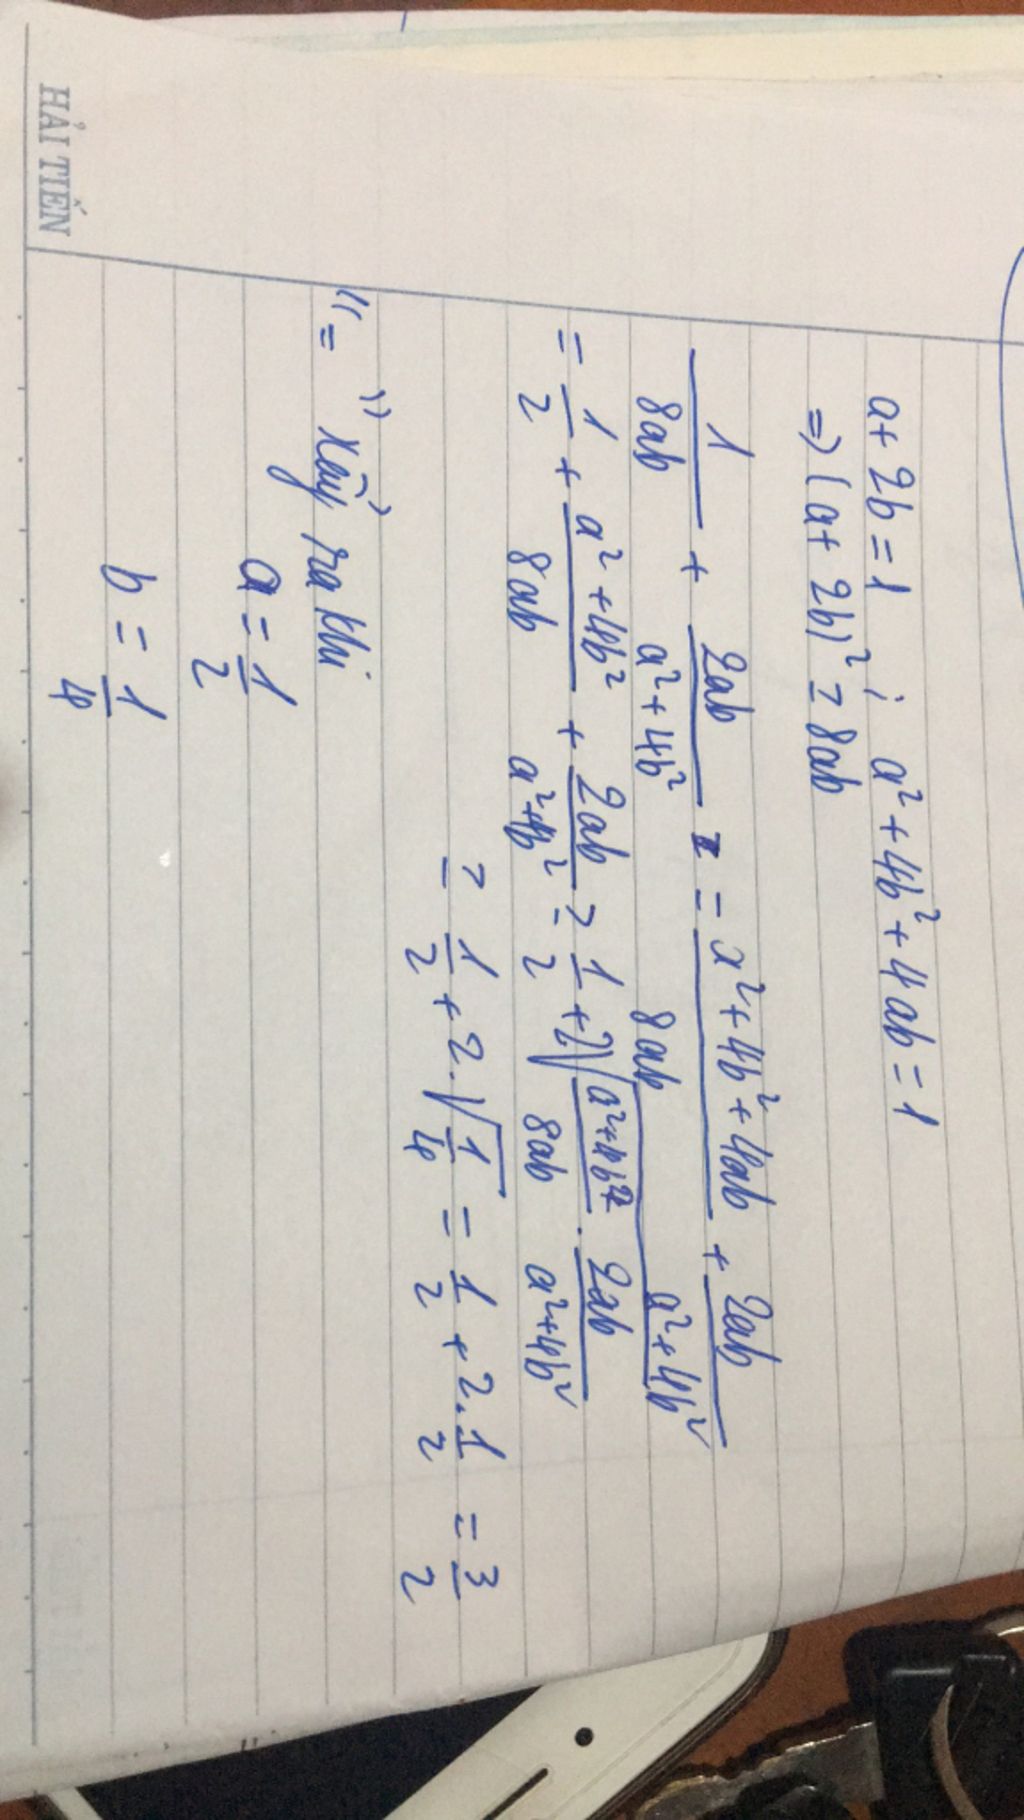 HẢI TIẾN
a + 2b = 1 ; a² + 4b² + 4ab = 1
=> (a + 2b)² ≥ 8ab
1/8ab + 2ab/(a² + 4b²) = (x² + 4b² + 4ab)/8ab + 2ab/(a² + 4b²)
= 1/2 + (a² + 4b²)/8ab + 2ab/(a² + 4b²) ≥ 1/2 + 2√((a² + 4b²)/8ab . 2ab/(a² + 4b²))
≥ 1/2 + 2.√(1/4) = 1/2 + 2.1/2 = 3/2
"=" xảy ra khi
a = 1/2
b = 1/4